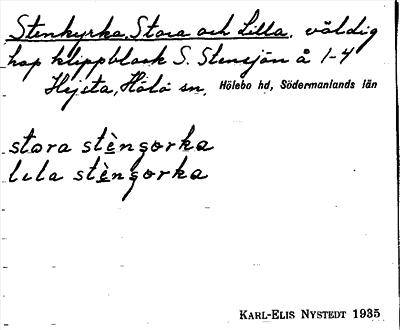 Stenkyrka, Stora och Lilla, väldig
hop klippblock S. Stensjön å 1-4
Hejsta, Hölö sn, Hölebo hd, Södermanlands län
stora stèngorka
lila stèngorka
KARL-ELIS NYSTEDT 1935